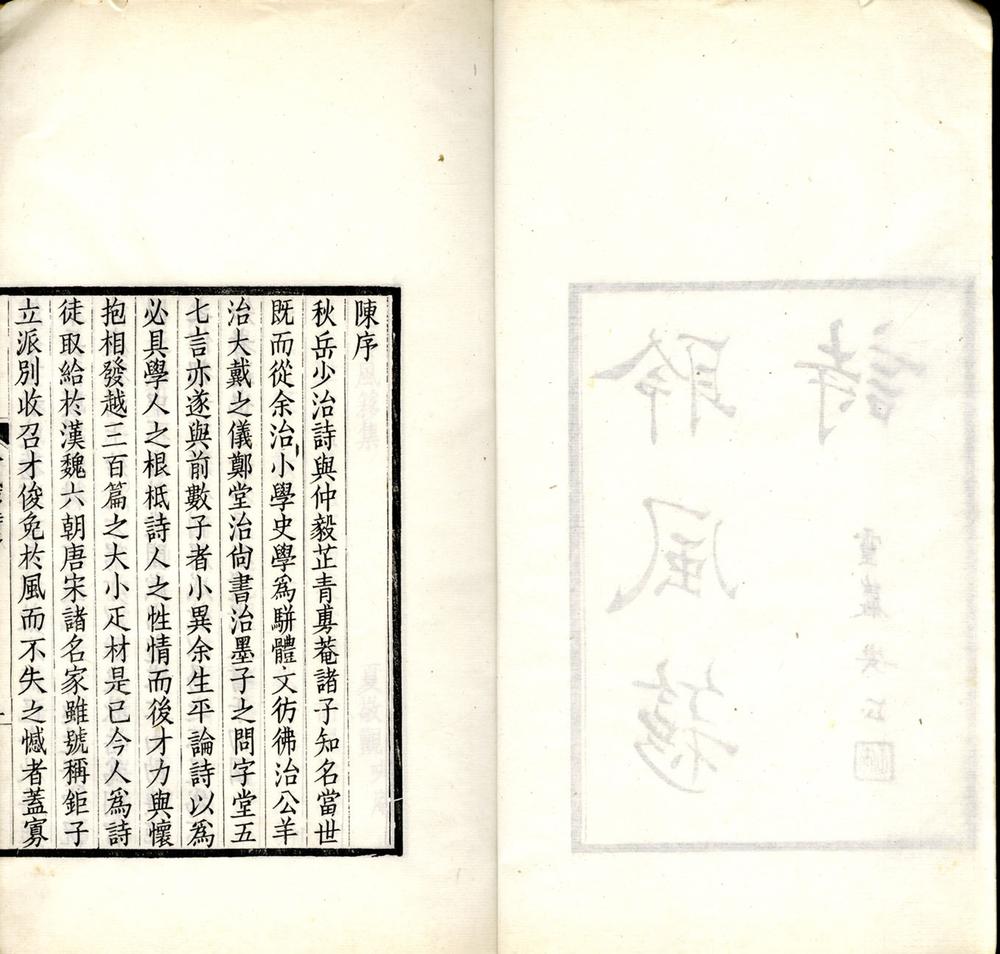 陳序
秋岳少治詩與仲毅芷青男菴諸子知名當世
既而從余治小學史學爲駢體文彷彿治公羊
治大戴之儀鄭堂治尙書治墨子之問字堂五
七言亦遂與前數子者小異余生平論詩以爲
必具學人之根柢詩人之性情而後才力與懷
抱相發越三百篇之大小疋材是已今人爲詩
徒取給於漢魏六朝唐宋諸名家雖號稱鉅子
立派別收召才俊免於風而不失之憾者蓋寡
詩
聆風簃